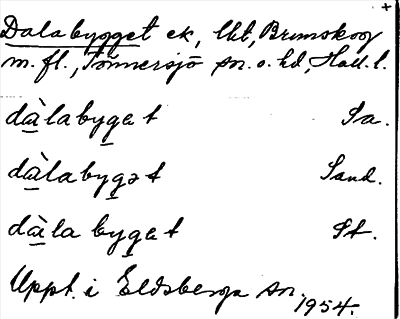 Dalabygget ek, lht, Brunskog
m. fl., Tönnersjö sn. o. hd, Hall. l.
dàlabyget Sa.
dàlabygət Sand.
dàlabyget St.
Uppt. i Eldsberga sn. 1954.